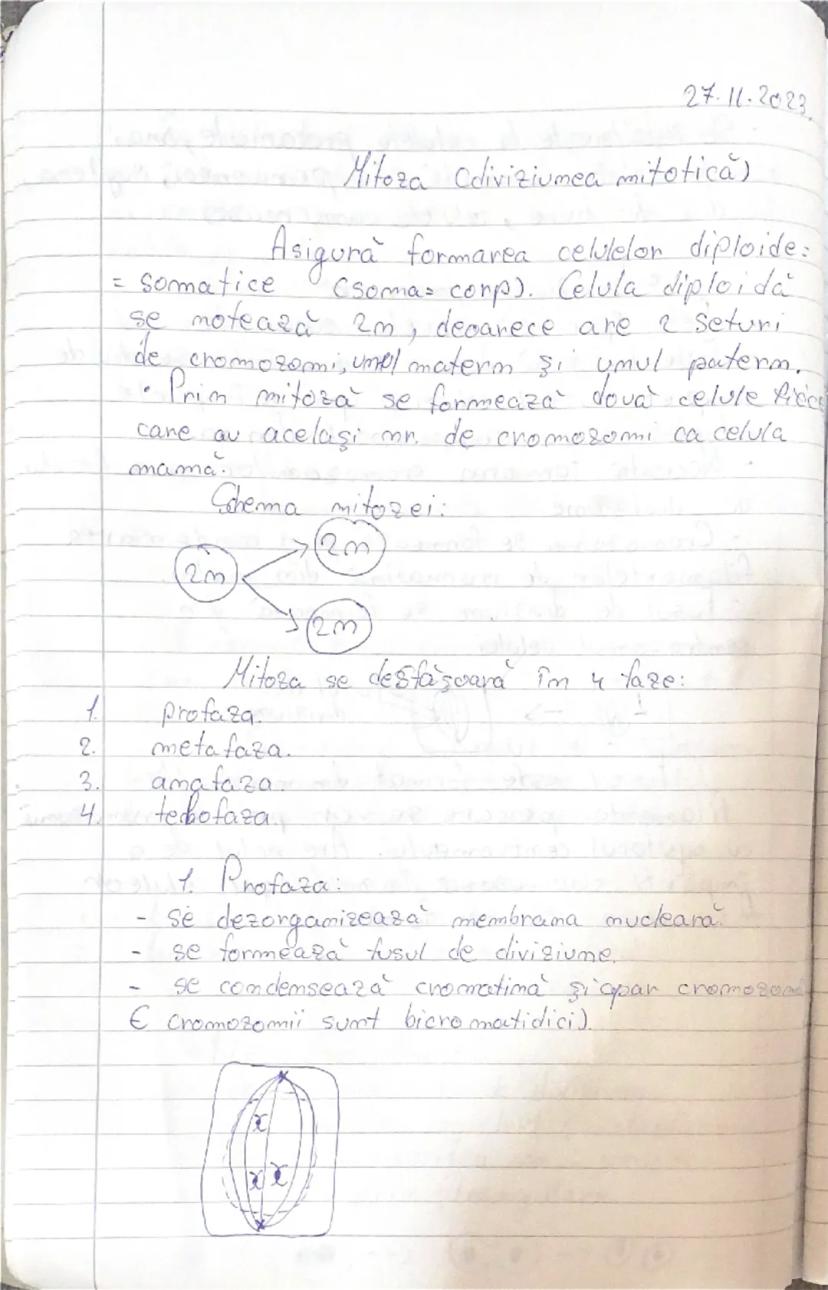 27.11.2023
Mitoza (diviziunea mitotică)
Asigură formarea celulelor diploide =
= somatice (soma = corp). Celula diploidă
se notează 2n, deoarece are 2 seturi
de cromozomi, unul matern și unul patern.
• Prin mitoză se formează două celule fiice
care au același nr. de cromozomi ca celula
mamă.
Schema mitozei:
2n
2n
2n
Mitoza se desfășoară în 4 faze:
1. profaza.
2. metafaza.
3. anafaza
4. telofaza.
1. Profaza:
- se dezorganizează membrana nucleară
- se formează fusul de diviziune.
- se condensează cromatină și apar cromozomi
( cromozomii sunt bicromatidici).